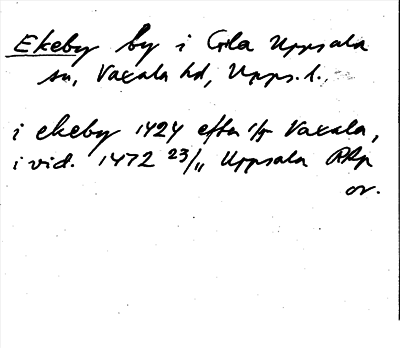 Ekeby by i Gla Uppsala
sn, Vaxala hd, Upps. l.
i ekeby 1424 efter 1/5 Vaxala,
i vid. 1472 23/11 Uppsala RAp
or.